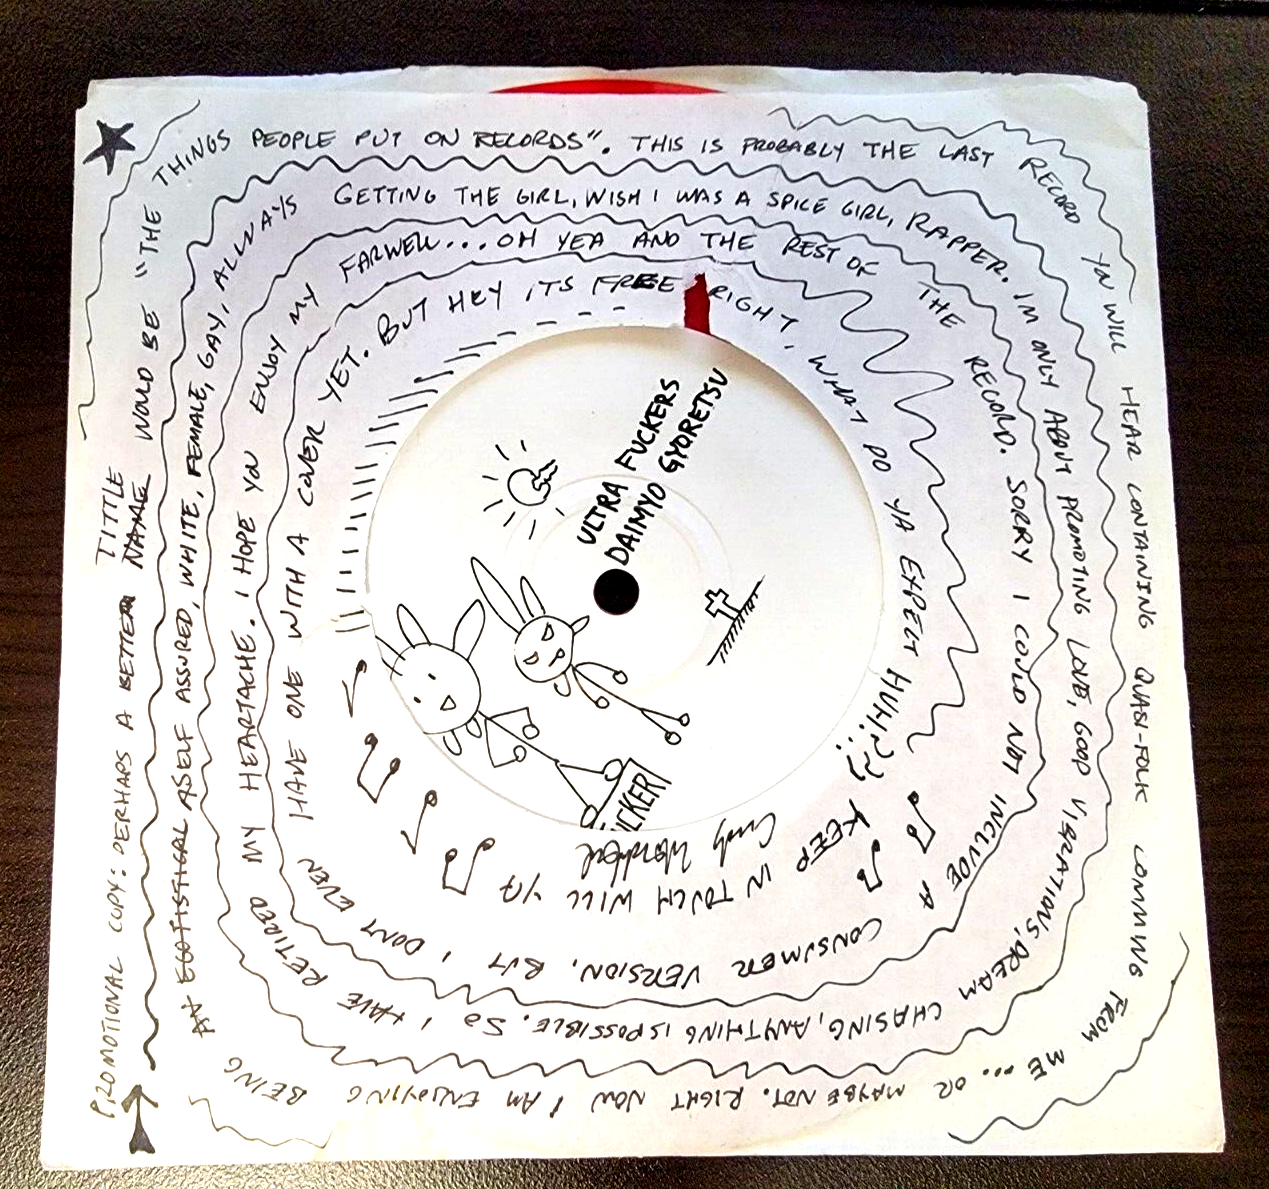 PROMOTIONAL COPY: PERHAPS A BETTER NAME TITTLE WOULD BE "THE
THINGS PEOPLE PUT ON RECORDS". THIS IS PROBABLY THE LAST RECORD
YOU WILL HEAR CONTAINING QUASI-FOLK COMMING FROM
ME... OR MAYBE NOT. RIGHT NOW I AM ENJOYING BEING
AN EGOTISTIGAL ASELF ASSURED, WHITE, FEMALE, GAY, ALLWAYS
GETTING THE GIRL, WISH I WAS A SPICE GIRL, RAPPER.
I'M ONLY ABOUT PROMOTING LOVE, GOOD VIBRATIONS, DREAM
CHASING, ANYTHING IS POSSIBLE. SO I HAVE RETIRED
MY HEARTACHE. I HOPE YOU ENJOY MY
FARWELL... OH YEA AND THE REST OF THE
RECORD. SORRY I COULD NOT INCLUDE A
CONSUMER VERSION, BUT I DONT EVEN
HAVE ONE WITH A COVER YET.
BUT HEY ITS FREE RIGHT, WHAT DO YA EXPECT HUH!??...
KEEP IN TOUCH WILL YA
ULTRA FUCKERS
DAIMYO GYORETSU
UCKER!